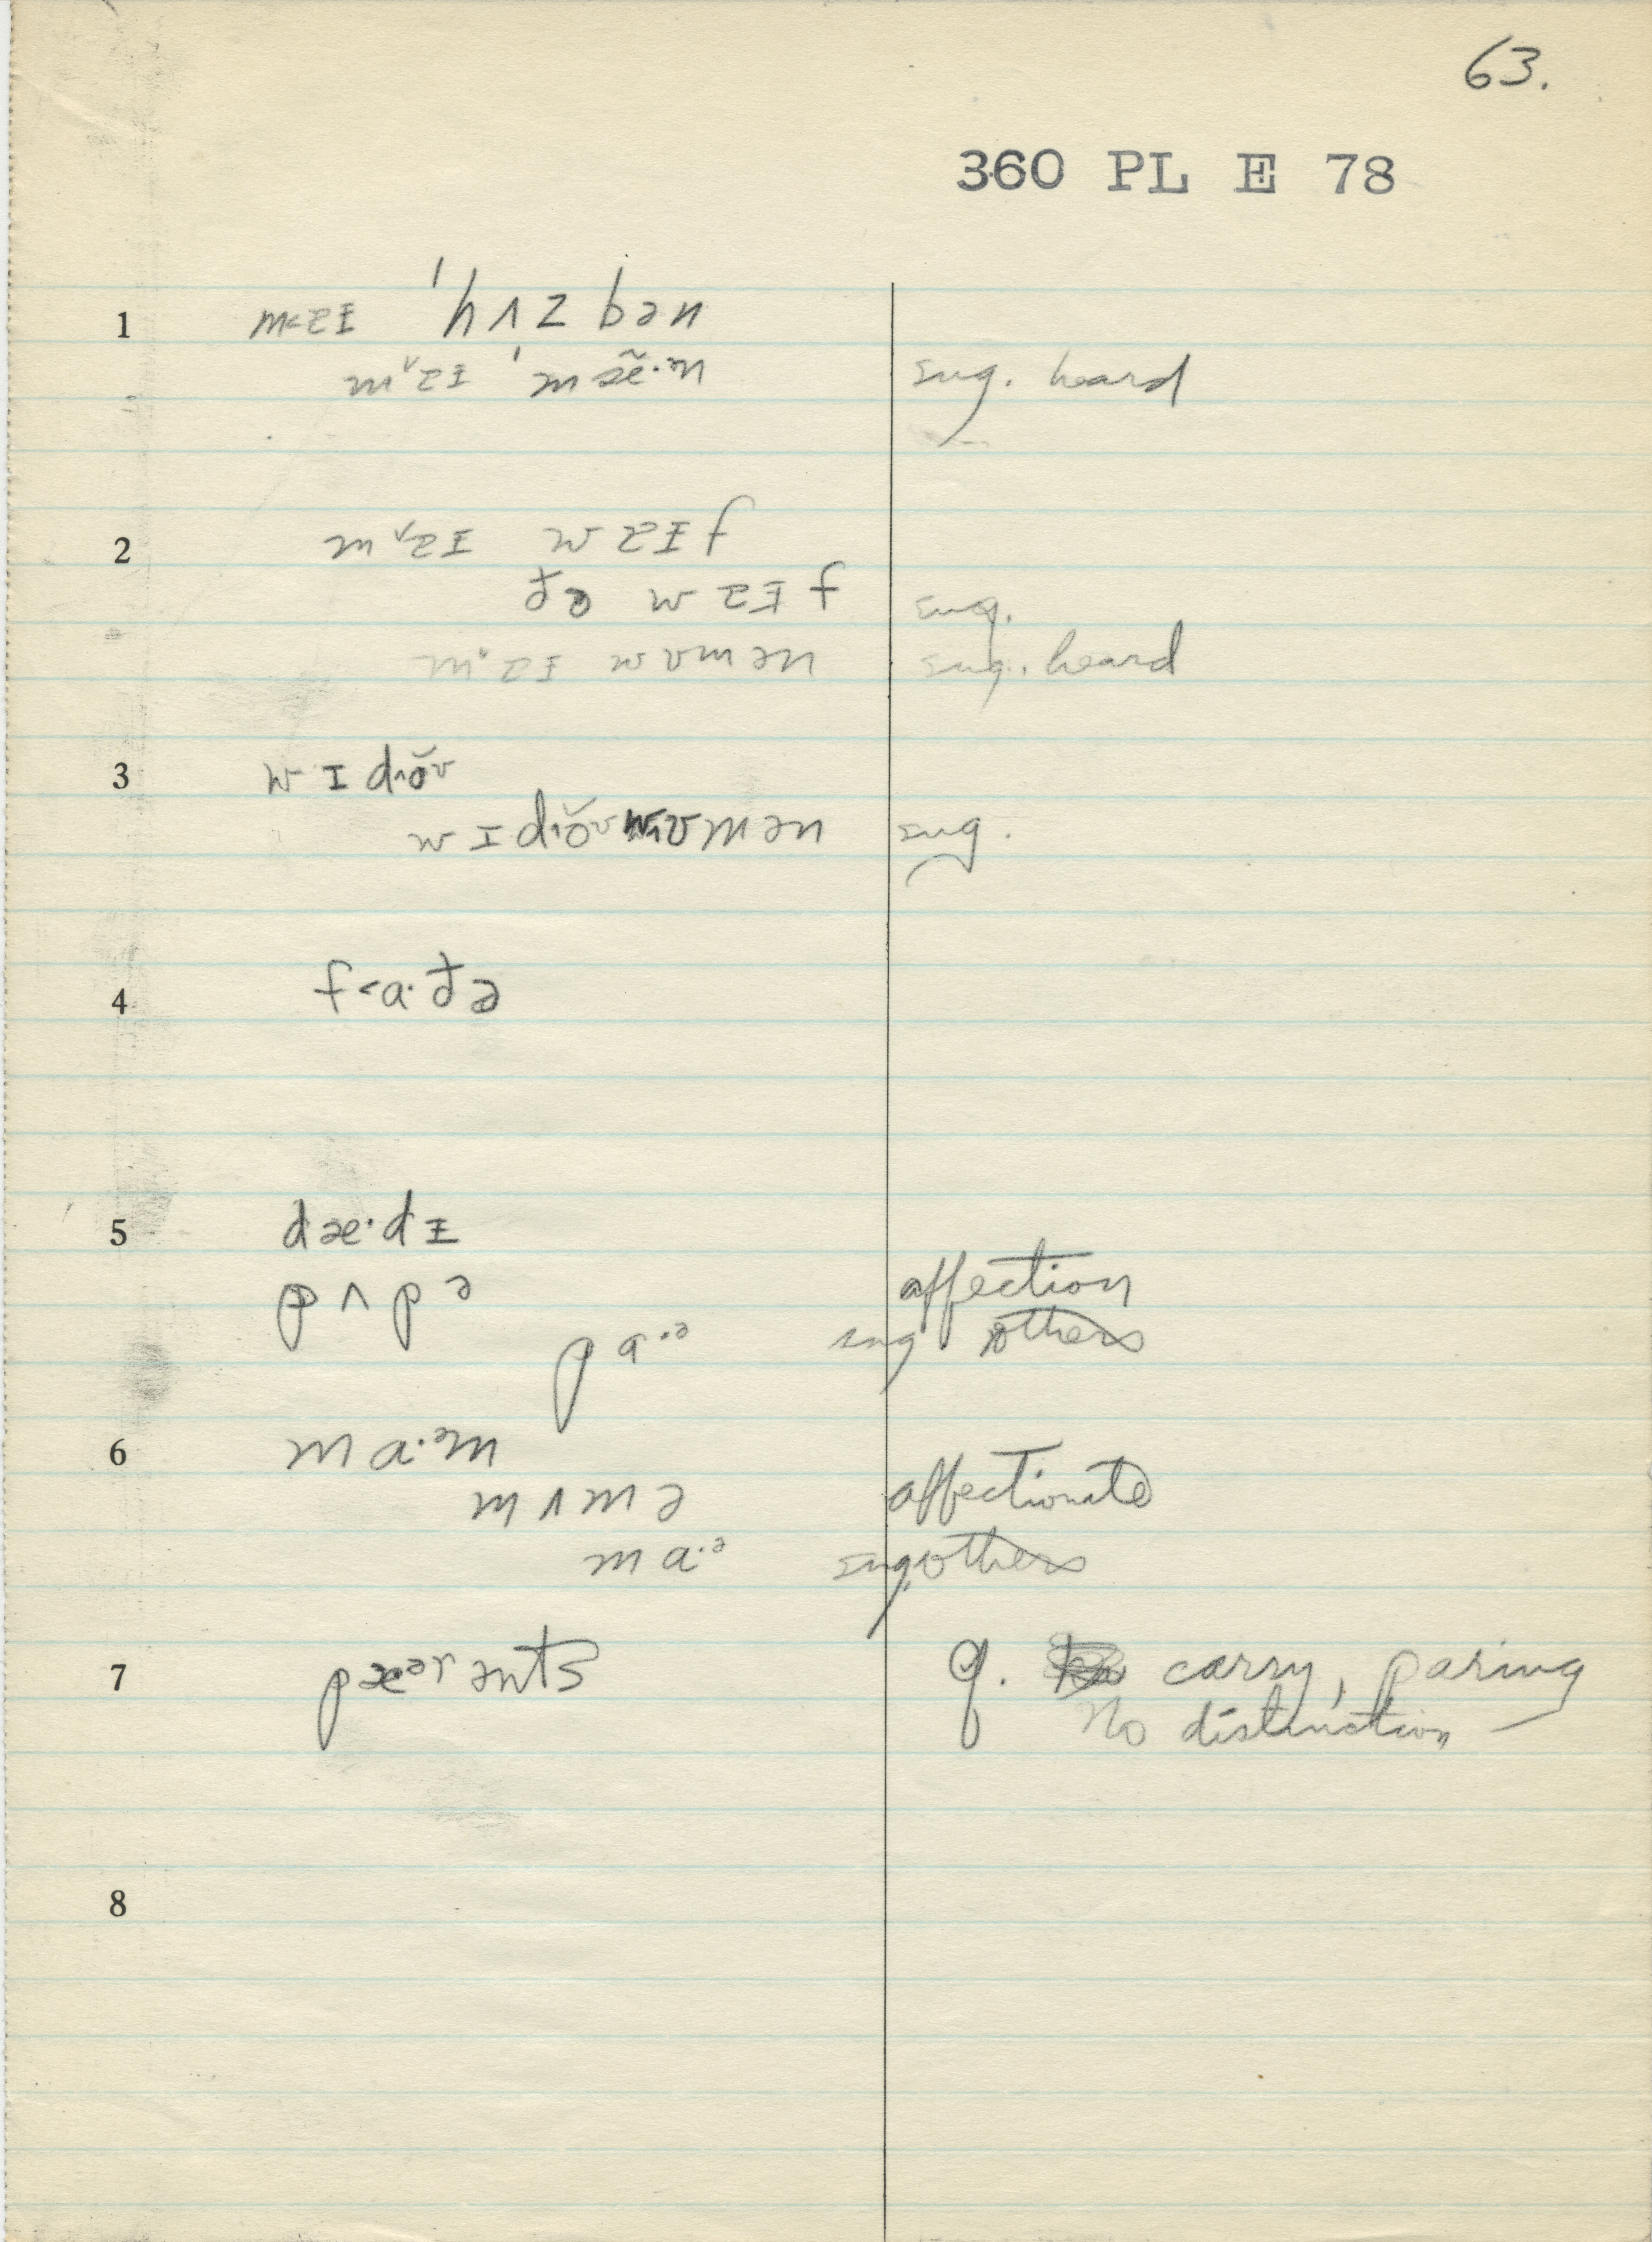 63.
360 PL E 78
1 m<zɪ 'hʌzbən
mᵛzɪ 'mæ̃·ᵊn sug. heard
2 mᵛzɪ wɑɪf
ðə wɑɪf sug.
wʊmən sug. heard
3 wɪdɪŏʊ
wɪdɪŏʊwʊmən sug.
4 f<a·ðə
5 dæ·dɪ
pʌpə affection
pa·ᵊ sug others
6 ma·ᵊm
mʌmə affectionate
ma·ᵊ sug. others
7 pæᵊrənts q. carry, paring
No distinction
8